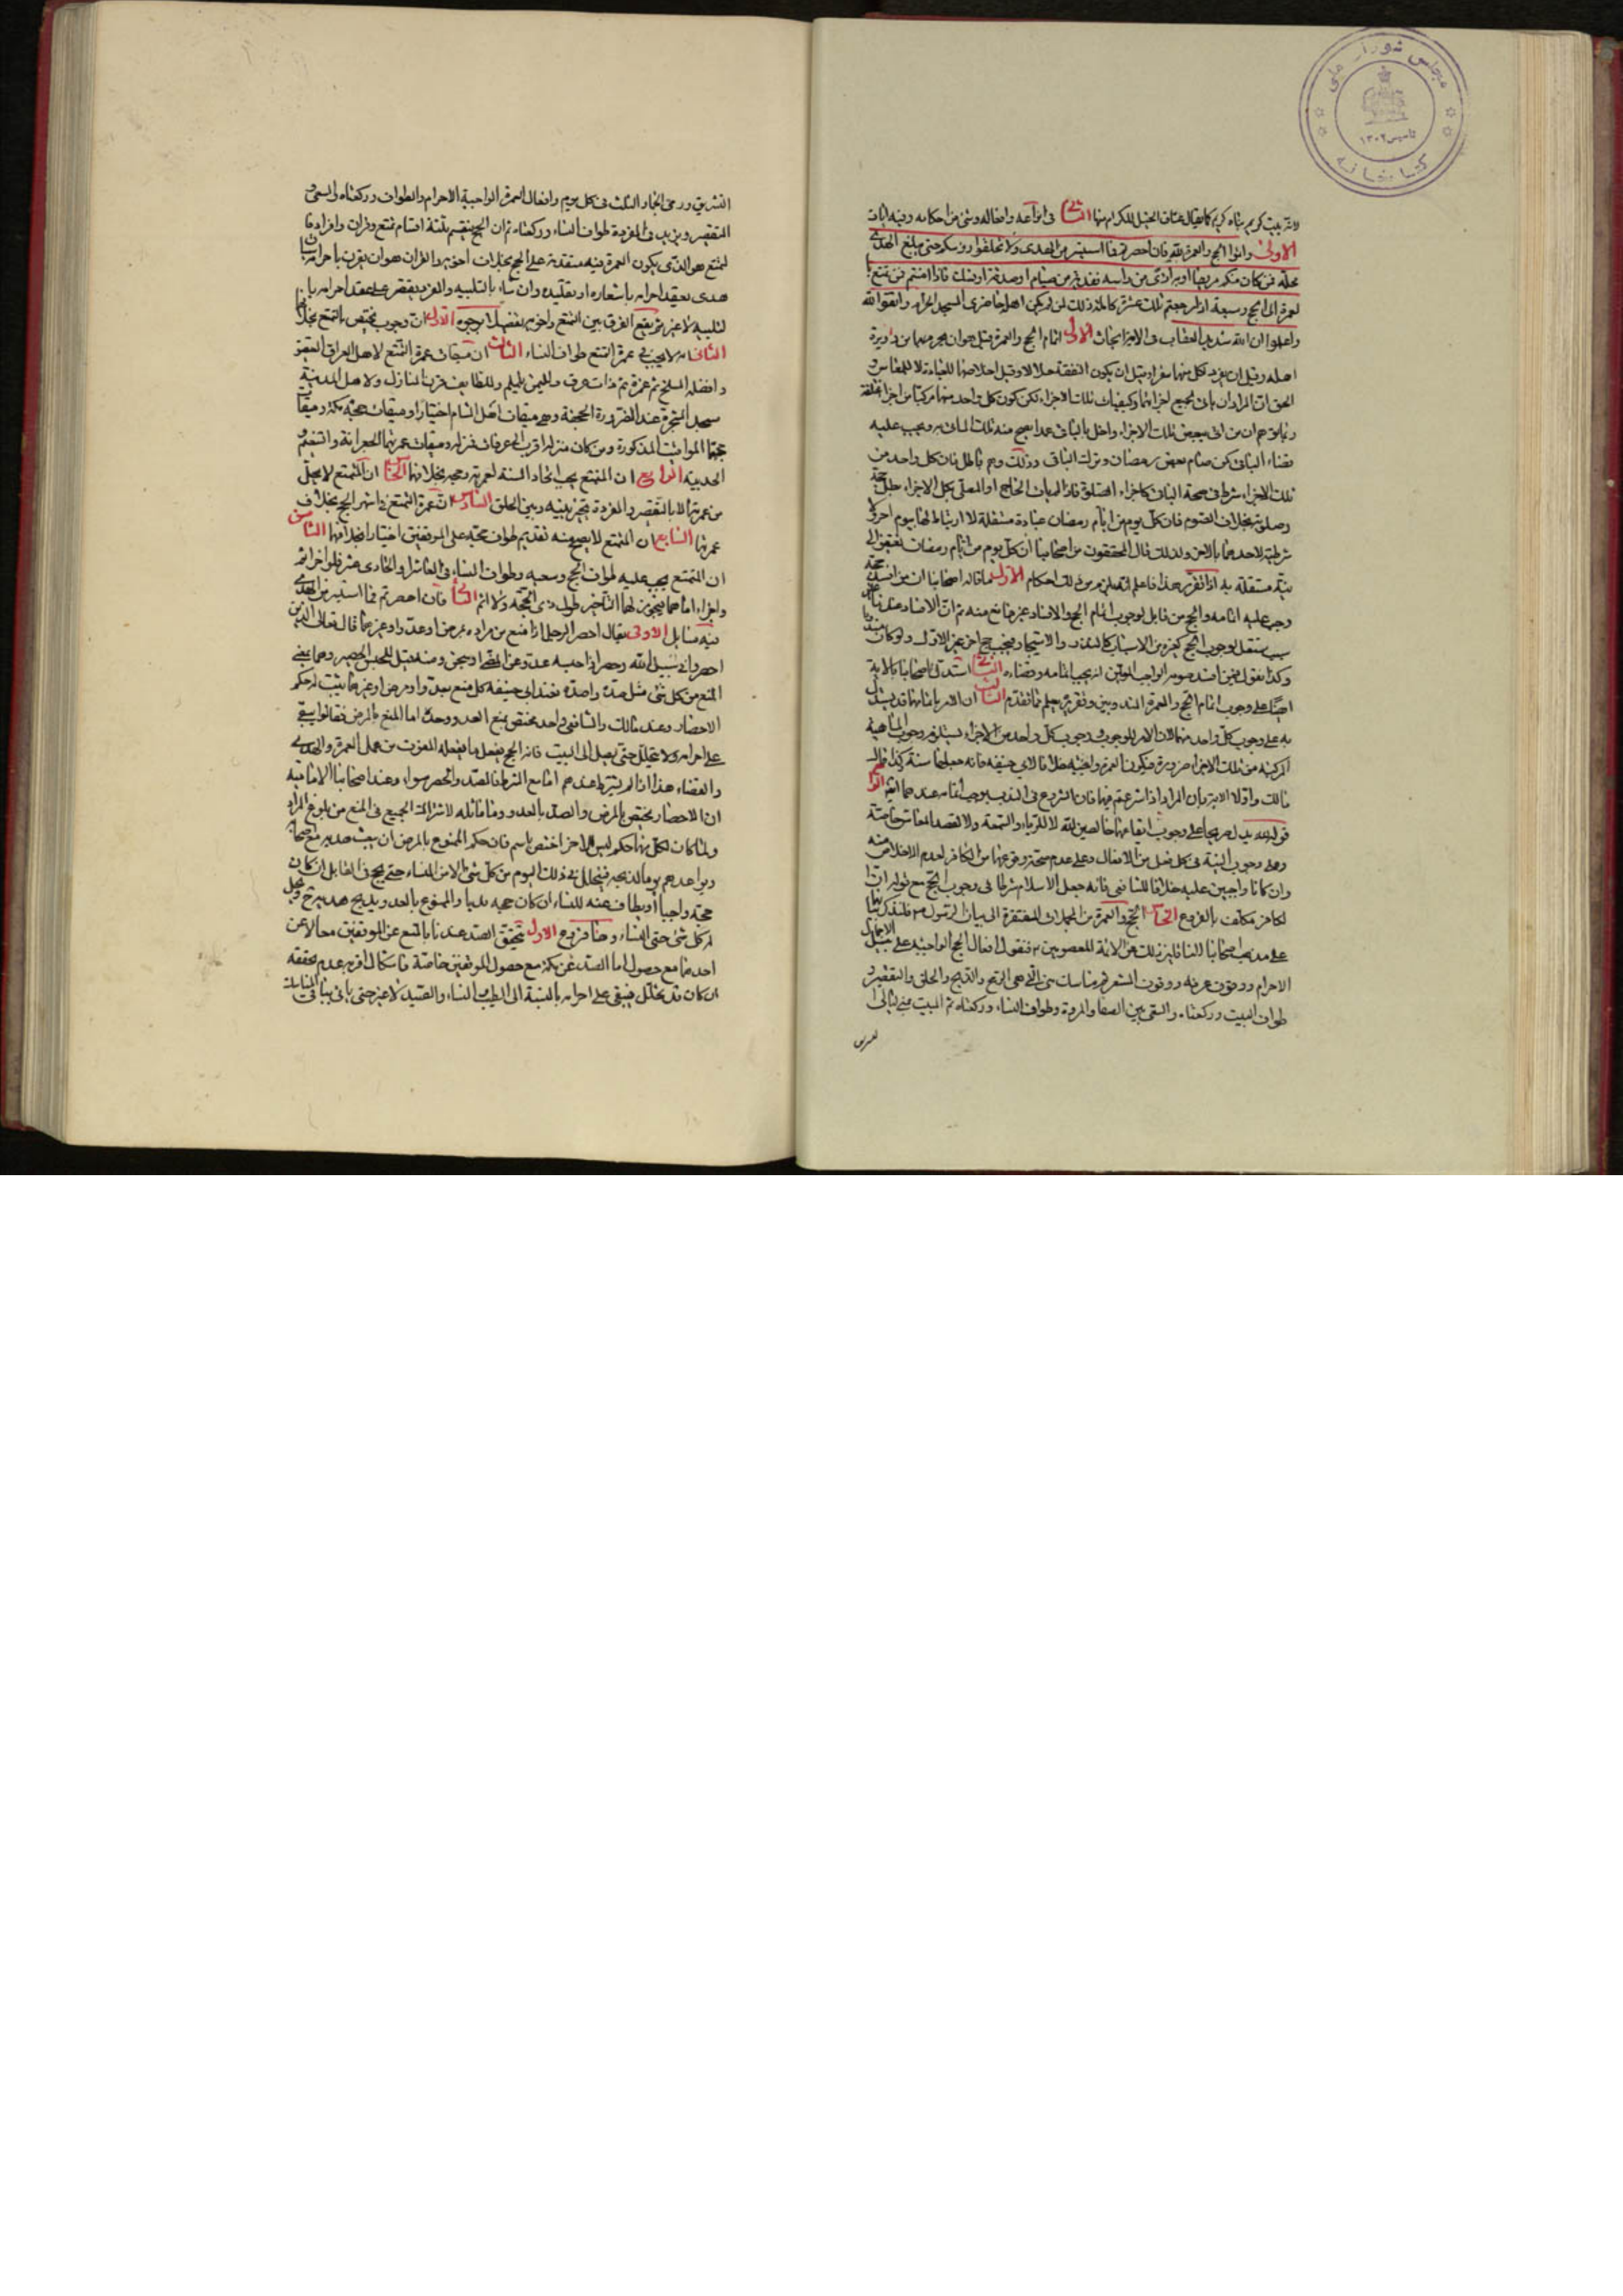 مجلس شورای ملی
تاسیس ۱۳۰۲
کتابخانه
لانه بيت كريم بناه كريم كما يقال عتاق الخيل للكرام منها الثاني في انواعه وافعاله وشئ من احكامه وفيه ايات
الاولى واتموا الحج والعمرة لله فان احصرتم فما استيسر من الهدى ولا تحلقوا رؤسكم حتى يبلغ الهدى
محله فمن كان منكم مريضا او به اذى من راسه ففدية من صيام او صدقة او نسك فاذا امنتم فمن تمتع با
لعمرة الى الحج وسبعة اذا رجعتم تلك عشرة كاملة ذلك لمن لم يكن اهله حاضرى المسجد الحرام واتقوا الله
واعلموا ان الله شديد العقاب في الاية ابحاث الاول اتمام الحج والعمرة قيل هو ان يحرم بهما من دويرة
اهله وقيل ان يفرد لكل منهما سفرا وقيل ان يكون النفقة حلالا وقيل اخلاصهما للعبادة لا للمعاش و
الحق ان المراد ان ياتى بجميع اجزائهما وكيفيات تلك الاجزاء لكن كون كل واحد منهما مركبا من اجزاء مختلفة
ربما يوهم ان من اتى ببعض تلك الاجزاء واخل بالباقى عمدا يصح منه ذلك الماتى به ويجب عليه
قضاء الباقى كمن صام بعض رمضان وترك الباقى وذلك وهم باطل فان كل واحد من
تلك الاجزاء شرط في صحة الباقى كاجزاء الصلوة
وصلوته بخلاف الصوم فان كل يوم من ايام رمضان عبادة مستقلة لا ارتباط لها بيوم اخر ولا
شرطية لاحدهما بالاخر ولذلك قال المحققون من اصحابنا ان كل يوم من ايام رمضان يفتقر الى
نية مستقلة به اذا تقرر هذا فاعلم انه يلزم من ذلك احكام الاول ما قاله اصحابنا ان من افسد حجه
وجب عليه اتمامه والحج من قابل لوجوب اتمام الحج والافساد غير مانع منه ثم ان الافساد عندنا
سبب مستقل لوجوب الحج كغيره من الاسباب كالنذر والاستيجار فيجب حج اخر غير الاول ولو كان مندوبا
وكذا نقول فيمن افسد صومه الواجب المعين انه يجب اتمامه وقضاءه الثاني استدل اصحابنا بالاية
ايضا على وجوب اتمام الحج والعمرة المندوبين وتقريره يعلم مما تقدم الثالث ان الامر باتمامهما قد يستدل
به على وجوب كل واحد منهما لان الامر للوجوب ووجوب كل واحد من الاجزاء يستلزم وجوب الماهية
المركبة من تلك الاجزاء ضرورة فيكون العمرة واجبة خلافا لابي حنيفة فانه جعلها سنة وكذا قال
مالك واولا الاية بان المراد اذا شرعتم فيهما فان الشروع في الندب يوجب اتمامه عندهما الرابع
قوله لله يدل صريحا على وجوب ايقاعهما خالصين لله لا للرياء والسمعة ولا لقصد المعاش خاصة
وعلى وجوب النية في كل فعل من الافعال وعلى عدم صحة وقوعهما من الكافر لعدم الاخلاص منه
وان كانا واجبين عليه خلافا للشافعي فانه جعل الاسلام شرطا في وجوب الحج مع قوله ان ا
لكافر مكلف بالفروع الخامس الحج والعمرة من المجملات المفتقرة الى بيان الرسول ص فلنذكر بيانهما
على مذهب اصحابنا الناقلين ذلك عن الائمة المعصومين ع فنقول افعال الحج الواجبة على سبيل الاجمال
الاحرام ووقوف عرفة ووقوف المشعر ثم مناسك منى التي هي الرمي والذبح والحلق والتقصير و
طواف البيت وركعتاه والسعى بين الصفا والمروة وطواف النساء وركعتاه ثم المبيت بمنى ليالى
التشريق
التشريق ورمى الجمار الثلث في كل يوم وافعال العمرة الواجبة الاحرام والطواف وركعتاه والسعى و
التقصير ويزيد في المفردة طواف النساء وركعتاه ثم ان الحج ينقسم ثلثة اقسام تمتع وقران وافراد فا
لتمتع هو الذى يكون العمرة فيه متقدمة على الحج بخلاف اخويه والقران هو ان يقرن باحرامه سياق
هدى يعقد احرامه باشعاره او تقليده وان شاء بالتلبيه والمفرد يقتصر على عقد احرامه با
لتلبيه لا غير ثم يقع الفرق بين التمتع واخويه تفصيلا بوجوه الاول ان وجوب يختص بالتمتع بخلا
الثانى انه لا يجب في عمرة التمتع طواف النساء الثالث ان ميقات عمرة التمتع لاهل العراق العقيق
وافضله المسلخ ثم غمرة ثم ذات عرق ولليمن يلملم وللطايف قرن المنازل ولاهل المدينة
مسجد الشجرة وعند الضرورة الجحفة وهى ميقات اهل الشام اختيارا وميقات حجه مكة وميقات
حجهما المواقيت المذكورة ومن كان منزله اقرب الى عرفات فمنزله وميقات عمرتهما الجعرانة والتنعيم و
الحديبية الرابع ان المتمتع يجب اتحاد السنة لعمرته وحجه بخلافهما الخامس ان المتمتع لا يحل
من عمرته الا بالتقصير والمفردة يتخير بينه وبين الحلق السادس ان عمرة التمتع في اشهر الحج بخلاف
عمرتهما السابع ان المتمتع لا يصح منه تقديم طواف حجه على الموقفين اختيارا بخلافهما الثامن
ان المتمتع يجب عليه طواف الحج وسعيه وطواف النساء في العاشر او الحادى عشر فلو اخر اثم
واجزاء اما هما فيجوز لهما التاخير طول ذى الحجة ولا اثم الثاني فان احصرتم فما استيسر من الهدى
فيه مسائل الاولى يقال احصر الرجل اذا منع من مراده بمرض او عدو او غيرهما قال تعالى الذين
احصروا في سبيل الله وحصر اذا حبسه عدو عن المضى او سجن ومنه قيل للمحبس الحصير وهما بمعنى
المنع من كل شئ مثل صده واصده فعند ابى حنيفة كل منع بعدو او مرض او غيرهما يثبت له حكم
الاحصار وعند مالك والشافعي واحمد يختص بمنع العدو وحده اما المنع بالمرض فقالوا يبقى
على احرامه ولا يتحلل حتى يصل الى البيت فان فاته الحج يفعل ما يفعله المفوت من عمل العمرة والهدى
والقضاء هذا اذا لم يشترط عندهم اما مع الشرط فالصد والحصر سواء وعند اصحابنا الامامية
ان الاحصار يختص بالمرض والصد بالعدو وما ماثله لاشتراك الجميع في المنع من بلوغ المراد
ولما كان لكل منهما حكم ليس للاخر اختص باسم فان حكم الممنوع بالمرض ان يبعث هديه مع اصحابه
ويواعدهم يوما لذبحه فيتحلل في ذلك اليوم من كل شئ الا من النساء حتى يحج في القابل ان كان
حجه واجبا او يطاف عنه للنساء ان كان حجه ندبا والممنوع بالعدو يذبح هديه ثم ويحل
له كل شئ حتى النساء وهنا فروع الاول يتحقق الصد عندنا بالمنع عن الموقفين معا لا عن
احدهما مع حصول اما الصد عن مكة مع حصول الموقفين خاصة فاشكال اقربه عدم تحققه
ان كان قد تحلل فيبقى على احرامه بالنسبة الى الطيب والنساء والصيد لا غير حتى ياتى بباقى المناسك